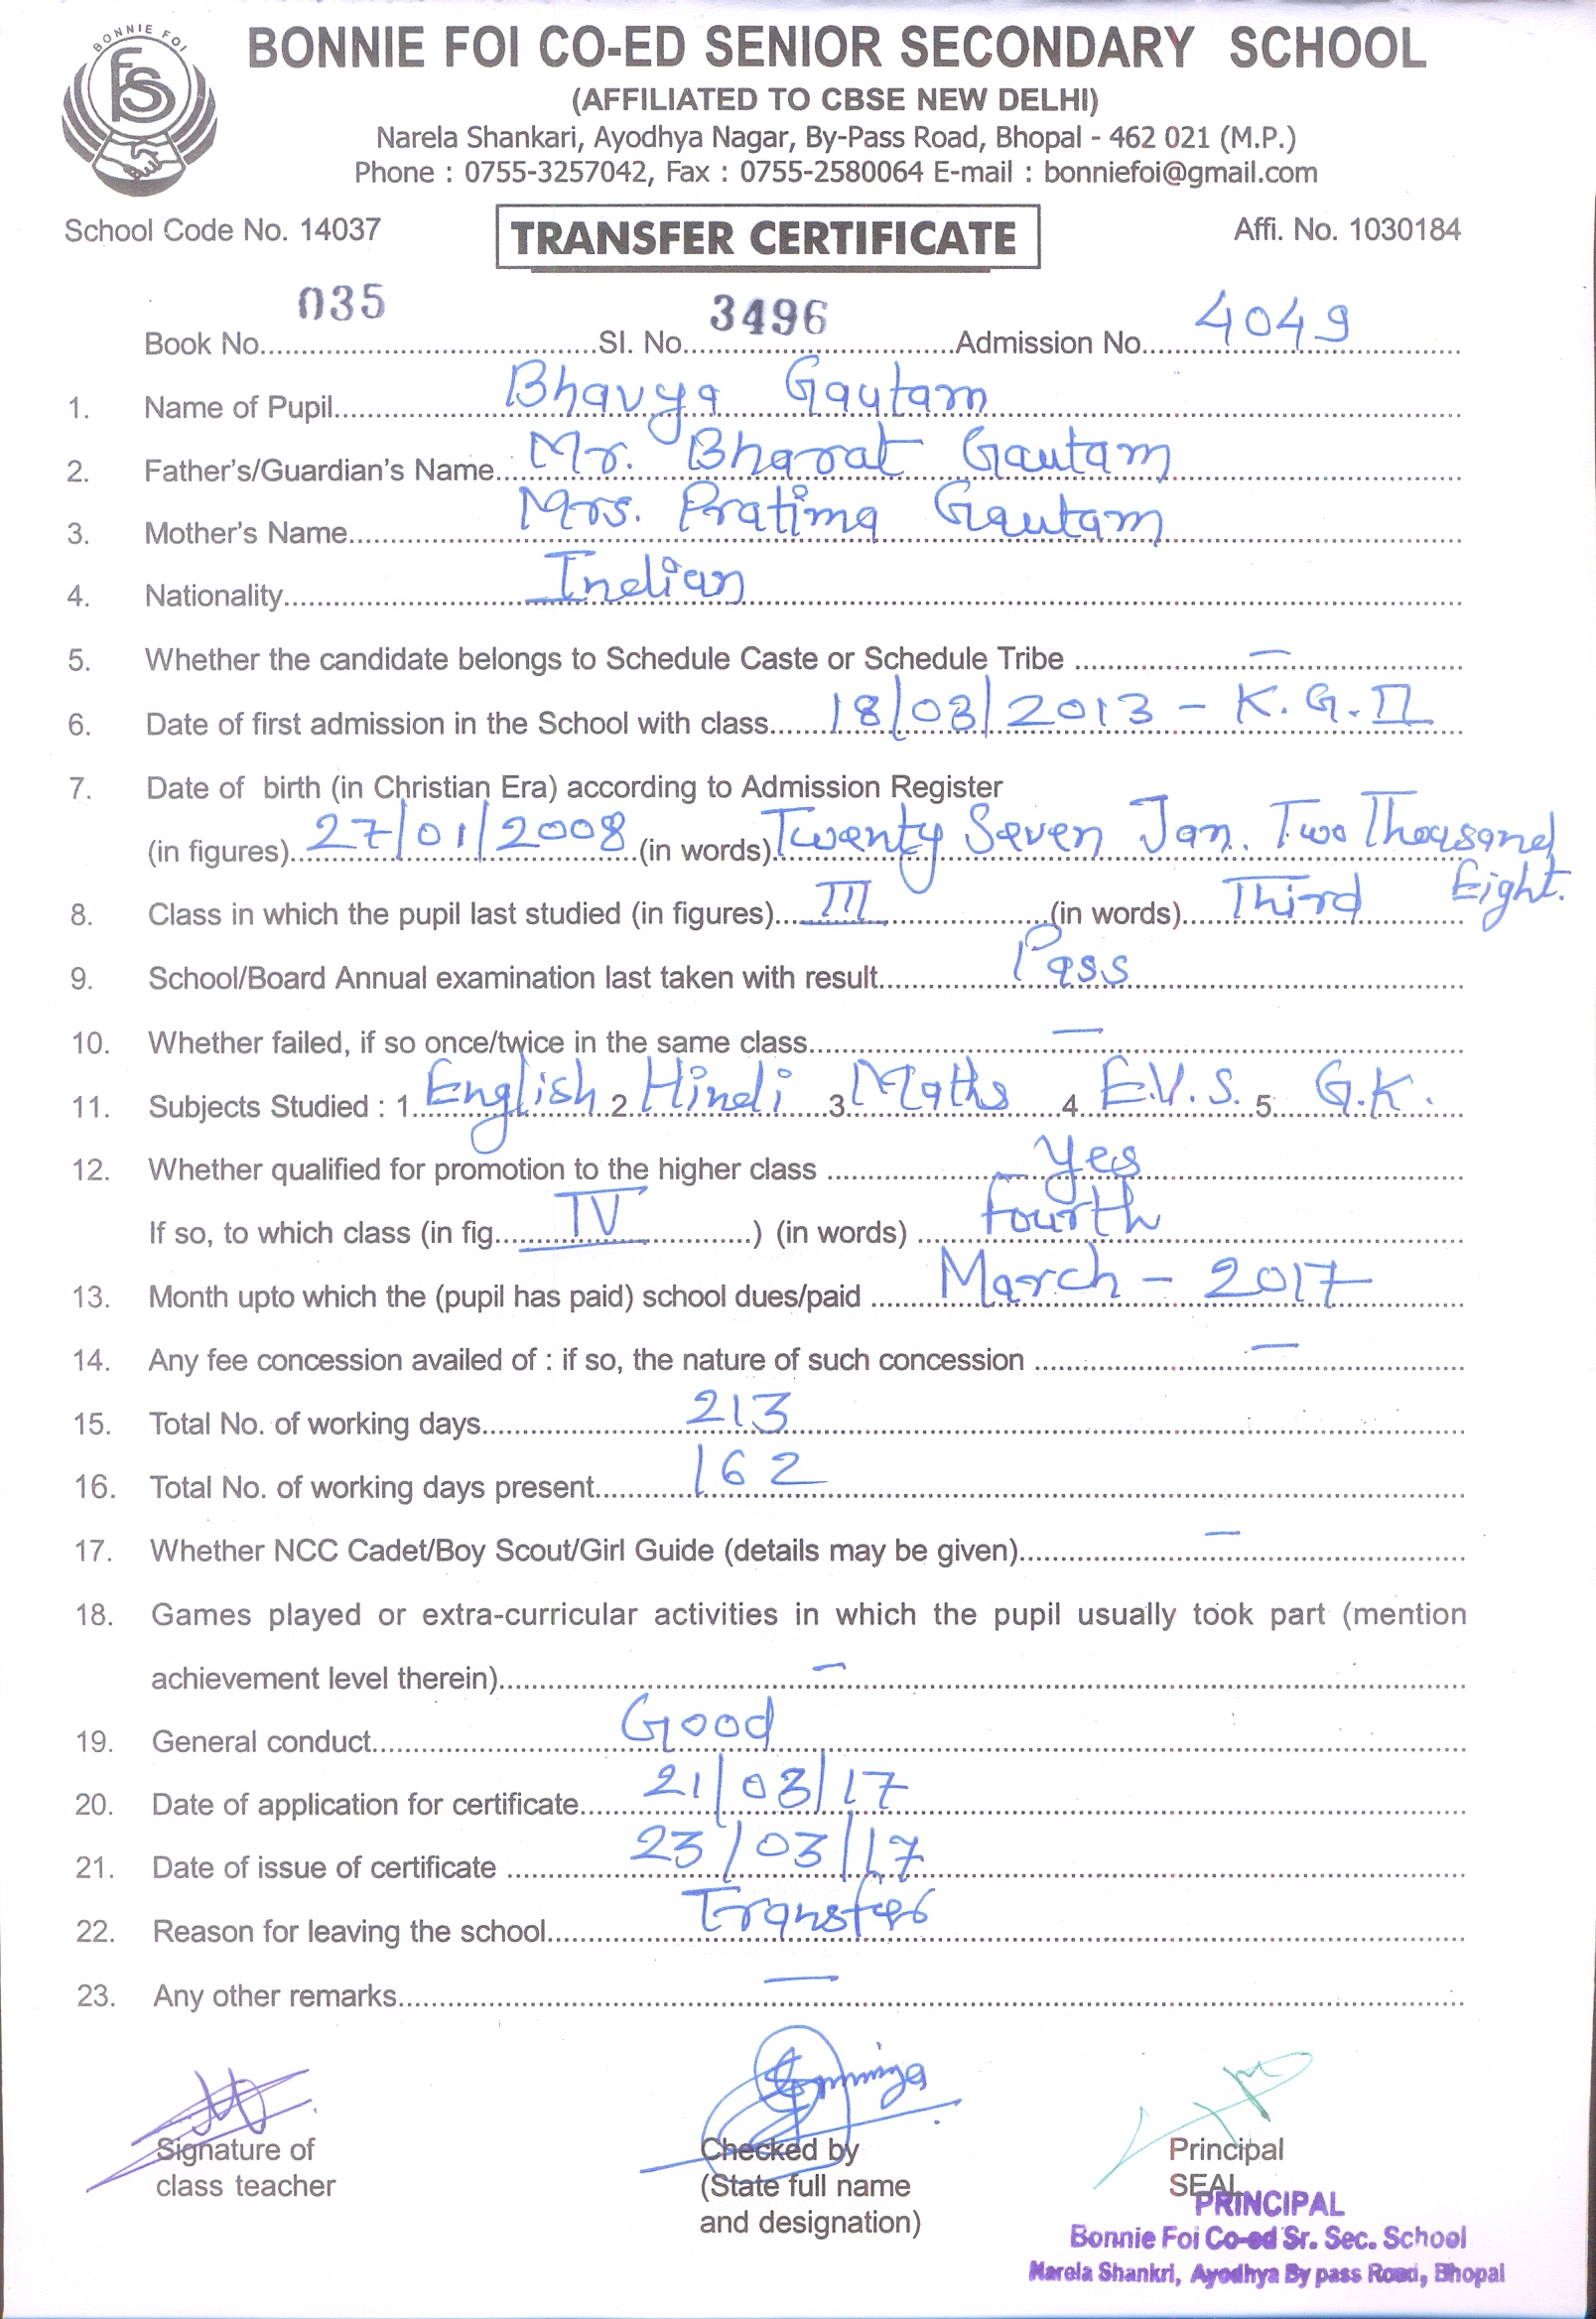 BONNIE FOI
BONNIE FOI CO-ED SENIOR SECONDARY SCHOOL
(AFFILIATED TO CBSE NEW DELHI)
Narela Shankari, Ayodhya Nagar, By-Pass Road, Bhopal - 462 021 (M.P.)
Phone : 0755-3257042, Fax : 0755-2580064 E-mail : bonniefoi@gmail.com
School Code No. 14037 TRANSFER CERTIFICATE Affi. No. 1030184
Book No. 035 Sl. No. 3496 Admission No. 4049
1. Name of Pupil Bhavya Gautam
2. Father's/Guardian's Name Mr. Bharat Gautam
3. Mother's Name Mrs. Pratima Gautam
4. Nationality Indian
5. Whether the candidate belongs to Schedule Caste or Schedule Tribe —
6. Date of first admission in the School with class 18/03/2013 - K.G.II
7. Date of birth (in Christian Era) according to Admission Register
(in figures) 27/01/2008 (in words) Twenty Seven Jan. Two Thousand Eight.
8. Class in which the pupil last studied (in figures) III (in words) Third
9. School/Board Annual examination last taken with result Pass
10. Whether failed, if so once/twice in the same class —
11. Subjects Studied : 1. English 2. Hindi 3. Maths 4. E.V.S. 5. G.K.
12. Whether qualified for promotion to the higher class Yes
If so, to which class (in fig. IV ) (in words) Fourth
13. Month upto which the (pupil has paid) school dues/paid March - 2017
14. Any fee concession availed of : if so, the nature of such concession —
15. Total No. of working days 213
16. Total No. of working days present 162
17. Whether NCC Cadet/Boy Scout/Girl Guide (details may be given) —
18. Games played or extra-curricular activities in which the pupil usually took part (mention
achievement level therein) —
19. General conduct Good
20. Date of application for certificate 21/03/17
21. Date of issue of certificate 23/03/17
22. Reason for leaving the school Transfer
23. Any other remarks —
Signature of Checked by Principal
class teacher (State full name SEAL
and designation)
PRINCIPAL
Bonnie Foi Co-ed Sr. Sec. School
Narela Shankri, Ayodhya By pass Road, Bhopal